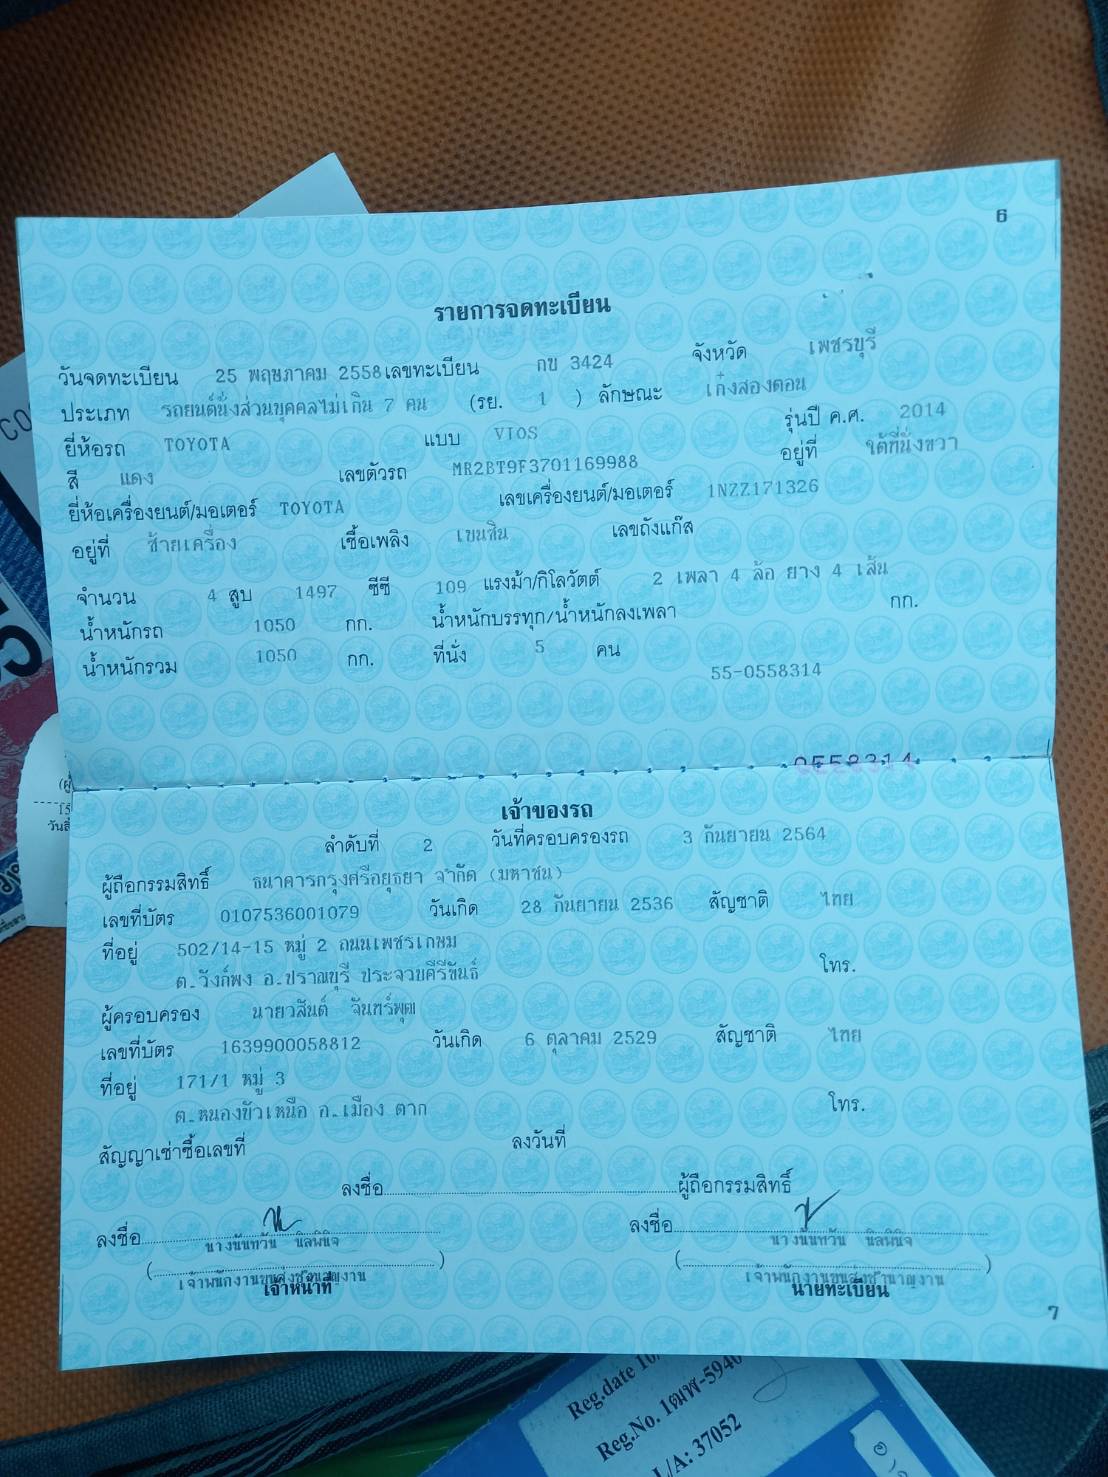 6
รายการจดทะเบียน
วันจดทะเบียน 25 พฤษภาคม 2558 เลขทะเบียน กข 3424 จังหวัด เพชรบุรี
ประเภท รถยนต์นั่งส่วนบุคคลไม่เกิน 7 คน (รย. 1 ) ลักษณะ เก๋งสองตอน
ยี่ห้อรถ TOYOTA แบบ VIOS รุ่นปี ค.ศ. 2014
สี แดง เลขตัวรถ MR2BT9F3701169988 อยู่ที่ ใต้ที่นั่งขวา
ยี่ห้อเครื่องยนต์/มอเตอร์ TOYOTA เลขเครื่องยนต์/มอเตอร์ 1NZZ171326
อยู่ที่ ซ้ายเครื่อง เชื้อเพลิง เบนซิน เลขถังแก๊ส
จำนวน 4 สูบ 1497 ซีซี 109 แรงม้า/กิโลวัตต์ 2 เพลา 4 ล้อ ยาง 4 เส้น
น้ำหนักรถ 1050 กก. น้ำหนักบรรทุก/น้ำหนักลงเพลา กก.
น้ำหนักรวม 1050 กก. ที่นั่ง 5 คน
55-0558314
0558314
เจ้าของรถ
ลำดับที่ 2 วันที่ครอบครองรถ 3 กันยายน 2564
ผู้ถือกรรมสิทธิ์ ธนาคารกรุงศรีอยุธยา จำกัด (มหาชน)
เลขที่บัตร 0107536001079 วันเกิด 28 กันยายน 2536 สัญชาติ ไทย
ที่อยู่ 502/14-15 หมู่ 2 ถนนเพชรเกษม
ต.วังก์พง อ.ปราณบุรี ประจวบคีรีขันธ์ โทร.
ผู้ครอบครอง นายวสันต์ จันทร์พุฒ
เลขที่บัตร 1639900058812 วันเกิด 6 ตุลาคม 2529 สัญชาติ ไทย
ที่อยู่ 171/1 หมู่ 3
ต.หนองบัวเหนือ อ.เมือง ตาก โทร.
สัญญาเช่าซื้อเลขที่ ลงวันที่
ลงชื่อ ผู้ถือกรรมสิทธิ์
ลงชื่อ ลงชื่อ
นางนันทวัน นิลพินิจ นางนันทวัน นิลพินิจ
( ) ( )
เจ้าพนักงานขนส่งชำนาญงาน เจ้าพนักงานขนส่งชำนาญงาน
เจ้าหน้าที่ นายทะเบียน
7
Reg.date
Reg.No. 1ฒพ-5940
L/A: 37052